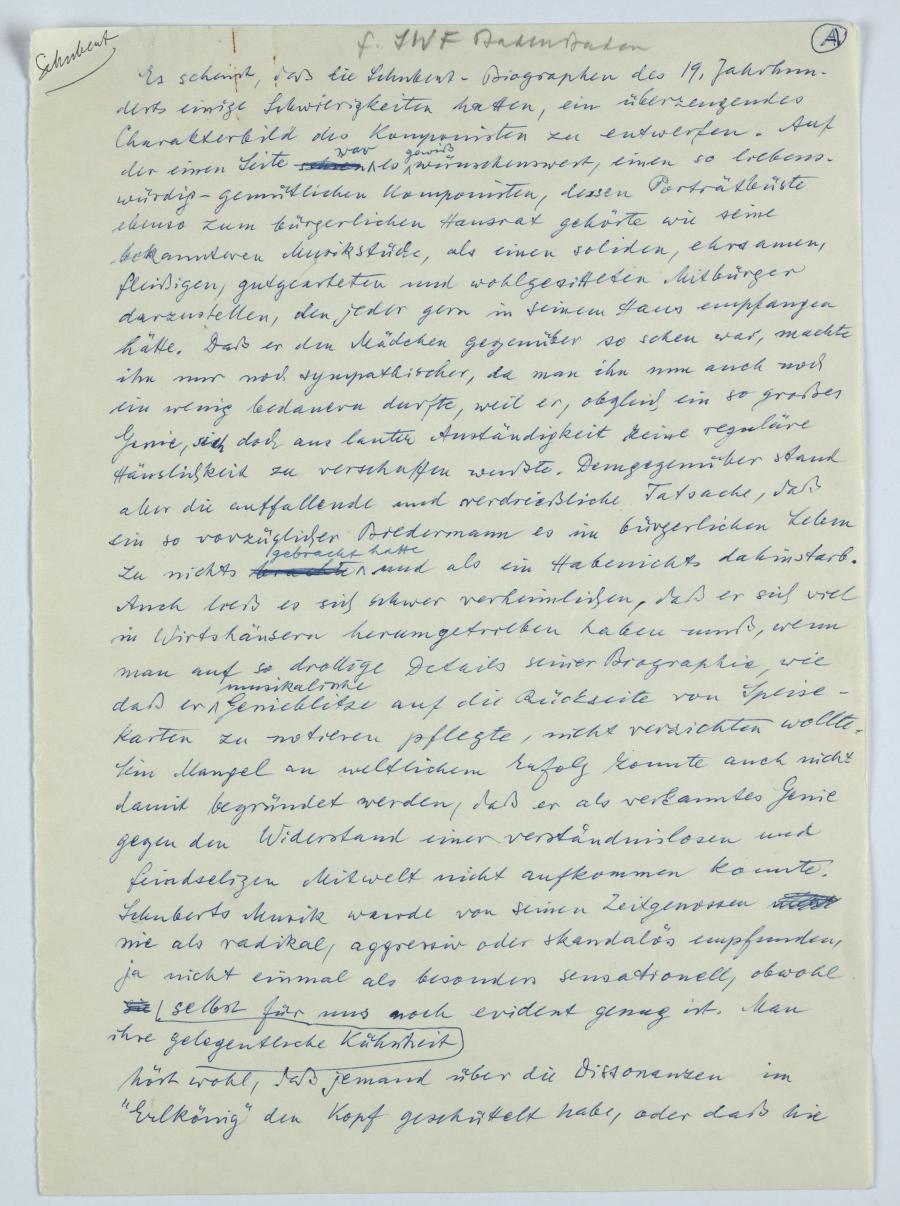 Schubert
f. SWF Baden Baden
A
Es scheint, daß die Schubert-Biographen des 19. Jahrhun-
derts einige Schwierigkeiten hatten, ein überzeugendes
Charakterbild des Komponisten zu entwerfen. Auf
der einen Seite war es gewiß wünschenswert, einen so liebens-
würdig-gemütlichen Komponisten, dessen Porträtbüste
ebenso zum bürgerlichen Hausrat gehörte wie seine
bekannteren Musikstücke, als einen soliden, ehrsamen,
fleißigen, gutgearteten und wohlgesitteten Mitbürger
darzustellen, den jeder gern in seinem Haus empfangen
hätte. Daß er den Mädchen gegenüber so scheu war, machte
ihn nur noch sympathischer, da man ihn nun auch noch
ein wenig bedauern durfte, weil er, obgleich ein so großes
Genie, sich doch aus lauter Anständigkeit keine reguläre
Häuslichkeit zu verschaffen wußte. Demgegenüber stand
aber die auffallende und verdrießliche Tatsache, daß
ein so vorzüglicher Biedermann es im bürgerlichen Leben
zu nichts gebracht hatte und als ein Habenichts dahinstarb.
Auch ließ es sich schwer verheimlichen, daß er sich viel
in Wirtshäusern herumgetrieben haben muß, wenn
man auf so drollige Details seiner Biographie, wie
daß er musikalische Genieblitze auf die Rückseite von Speise-
karten zu notieren pflegte, nicht verzichten wollte.
Sein Mangel an weltlichem Erfolg konnte auch nicht
damit begründet werden, daß er als verkanntes Genie
gegen den Widerstand einer verständnislosen und
feindseligen Mitwelt nicht aufkommen konnte.
Schuberts Musik wurde von seinen Zeitgenossen
nie als radikal, aggressiv oder skandalös empfunden,
ja nicht einmal als besonders sensationell, obwohl
selbst für uns noch evident genug ist. Man
ihre gelegentliche Kühnheit
hört wohl, daß jemand über die Dissonanzen im
"Erlkönig" den Kopf geschüttelt habe, oder daß hie